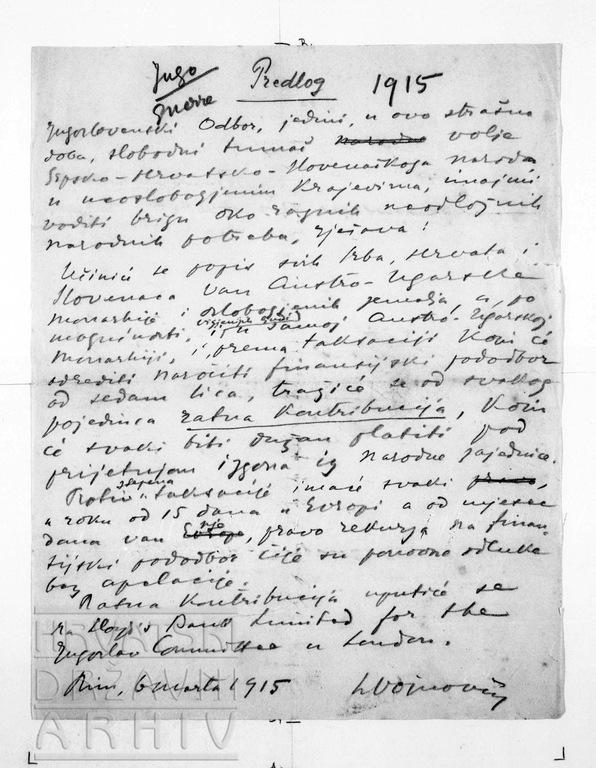 Jugo
Guerre
Predlog 1915
Jugoslovenski Odbor, jedini, u ovo strašno
doba, slobodni tumač narodne volje
Srpsko-Hrvatsko-Slovenačkoga naroda
u neoslobogjenim Krajevima, imajući
voditi brigu oko raznih neodložnih
narodnih potreba, rješava:
Učiniće se popis svih Srba, Hrvata i
Slovenaca van Austro-Ugarske
Monarhije i oslobogjenih zemalja, a, po
mogućnosti, i u samoj Austro-Ugarskoj
Monarhiji, i, prema taksaciji Koju će
odrediti naročiti finansijski pododbor
od sedam lica, tražiće se od svakog
pojedinca ratna Kontribucija, Koju
će svaki biti dužan platiti pod
prijetnjom izgona iz Narodne zajednice.
Protiv taksacije imaće svaki pravo,
u roku od 15 dana u Evropi a od mjesec
dana van nje Evrope, pravo rekurza na finan-
sijski pododbor čije su ponovne odluke
bez apelacije.
Ratna Kontribucija uputiće se
na Lloyd's Bank Limited for the
Jugoslav Committee u London.
Rim, 6 marta 1915 LVojnović
HRVATSKI
DRŽAVNI
ARHIV